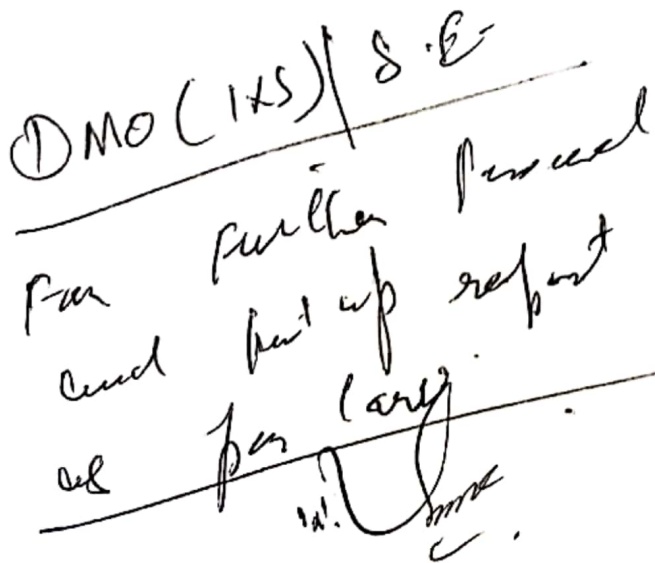 DMO (I&S) / S.E
For further proceed
and put up report
as per law